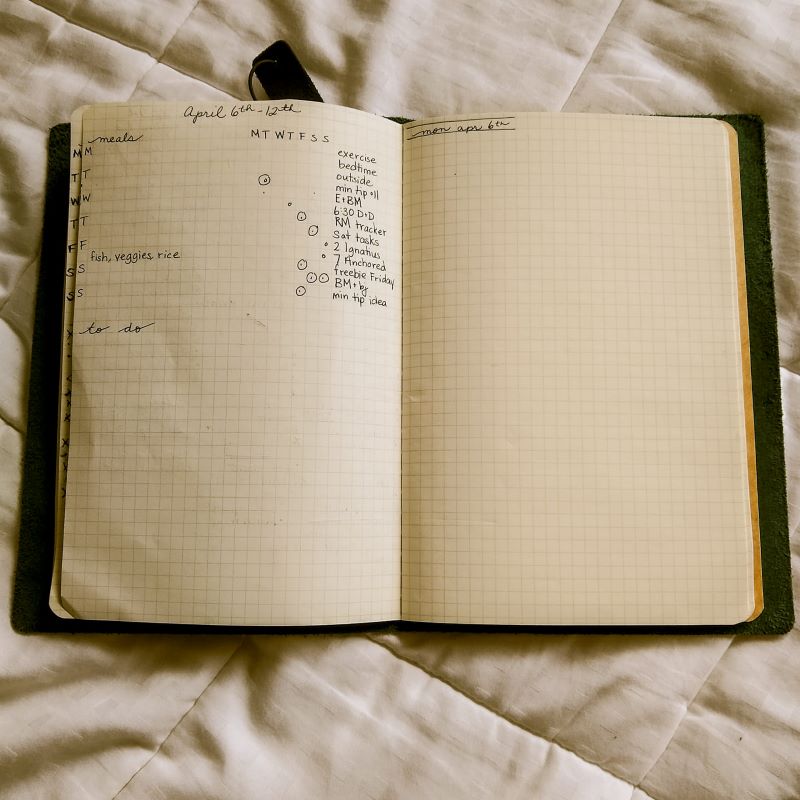 April 6th-12th
meals
M T W T F S S
M M
T T
W W
T T
F F
fish, veggies, rice
S S
S S
exercise
bedtime
outside
min tip all
E+BM
6:30 D+D
RM tracker
Sat tasks
2 Ignatius
7 Anchored
freebie Friday
BM+by
min tip idea
to do
mon apr 6th